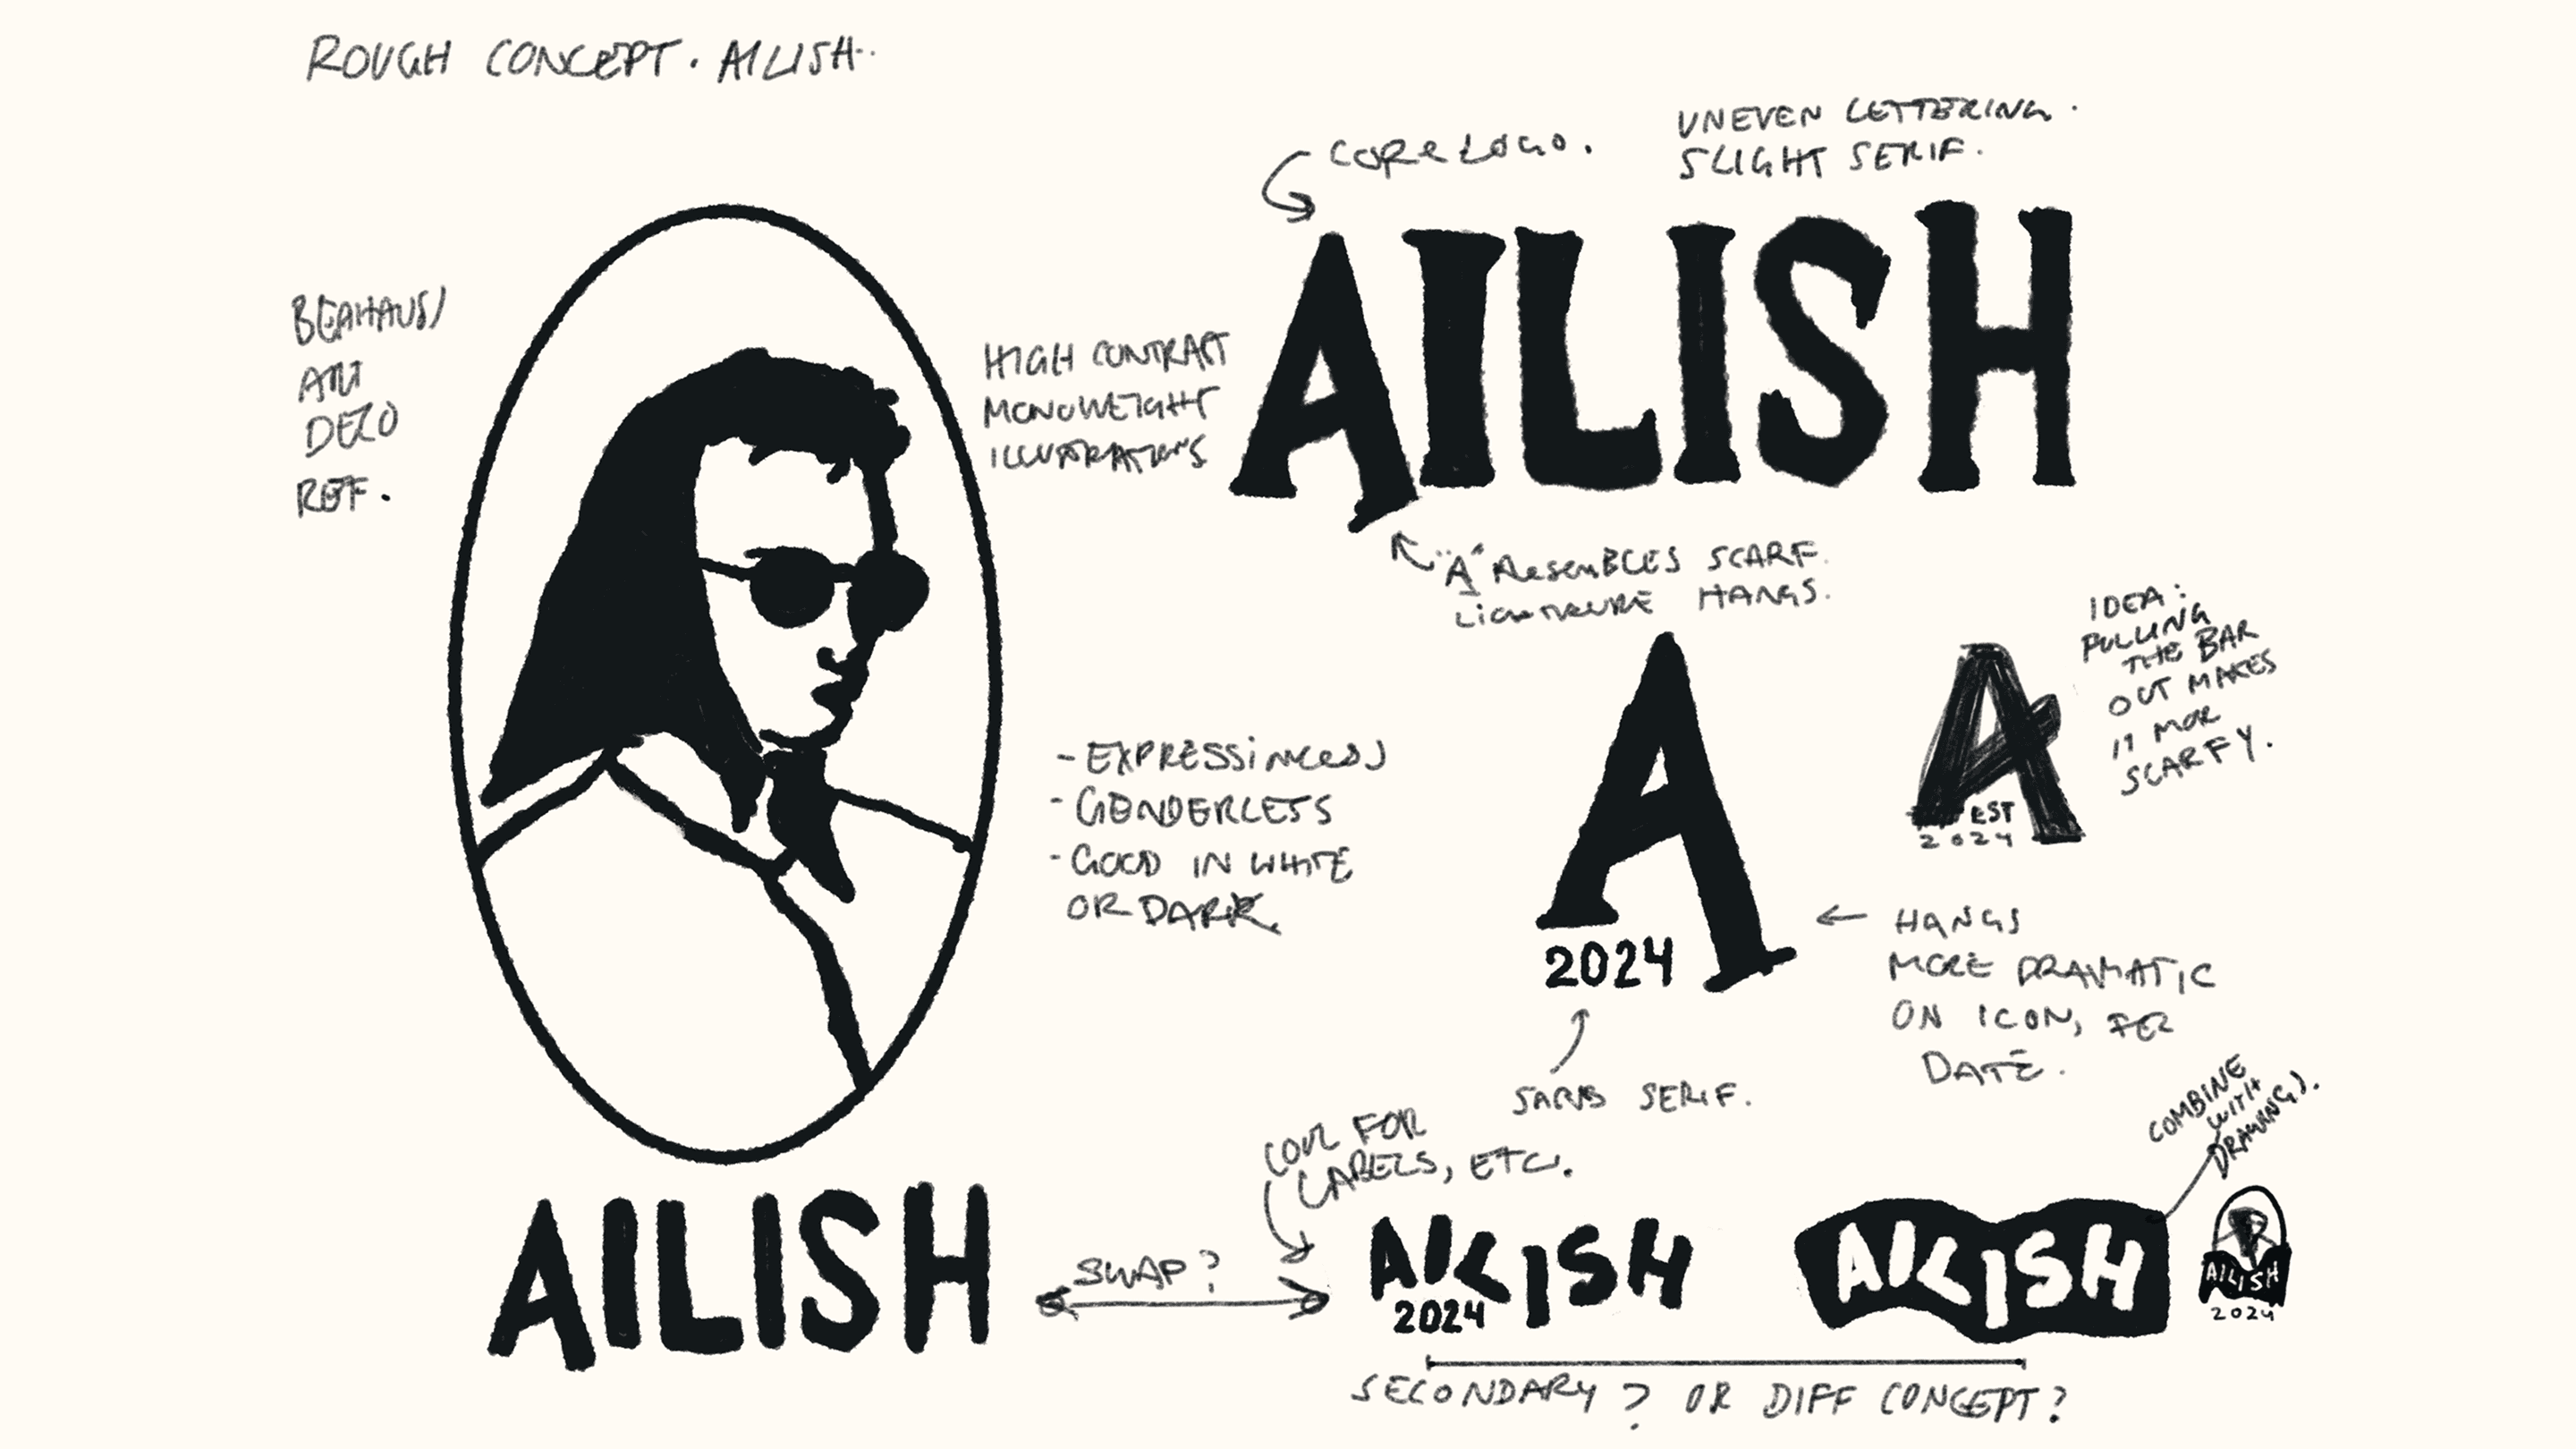 ROUGH CONCEPT. AILISH..
CORE LOGO.
UNEVEN LETTERING.
SLIGHT SERIF.
AILISH
BEAHAUS/
ART
DECO
REF.
HIGH CONTRAST
MONOWEIGHT
ILLUSTRATIONS
"A" RESEMBLES SCARF.
HANGS.
IDEA:
PULLING
THE BAR
OUT MAKES
IT MOR
SCARFY.
A
A
EST
2024
- GENDERLESS
- GOOD IN WHITE
OR DARK
2024
HANGS
MORE DRAMATIC
ON ICON, FER
DATE.
SANS SERIF.
COOL FOR
LABELS, ETC.
COMBINE
WITH
DRAWING).
AILISH
SWAP?
AILISH
2024
AILISH
AILISH
2024
SECONDARY? OR DIFF CONCEPT?